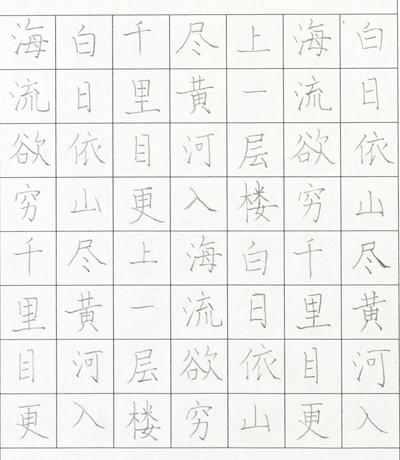 白日依山尽黄河入
海流欲穷千里目更
上一层楼白日依山
尽黄河入海流欲穷
千里目更上一层楼
白日依山尽黄河入
海流欲穷千里目更